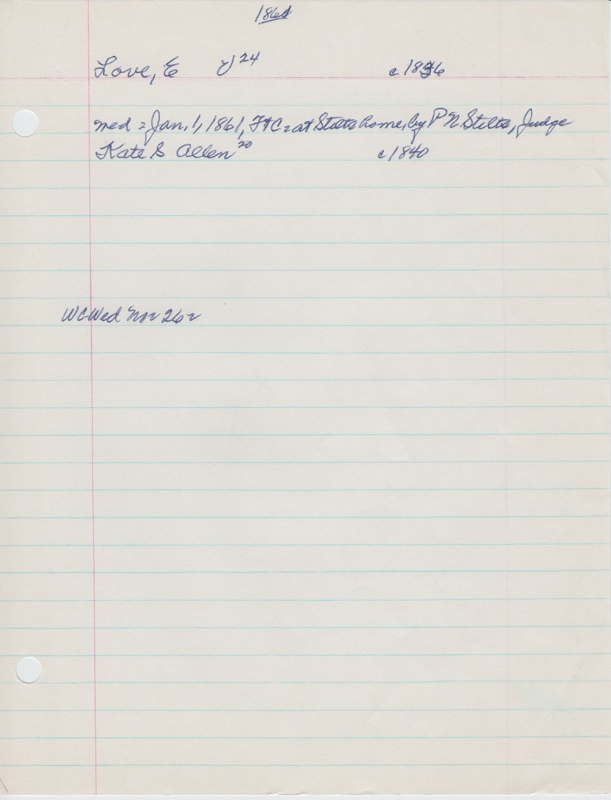 1860
Love, E J 24 c 1836
med = Jan, 1, 1861, F+C = at Stilts home, by P N Stilts, Judge
Kate S Allen 20 c 1840
WC Wed Nov 262